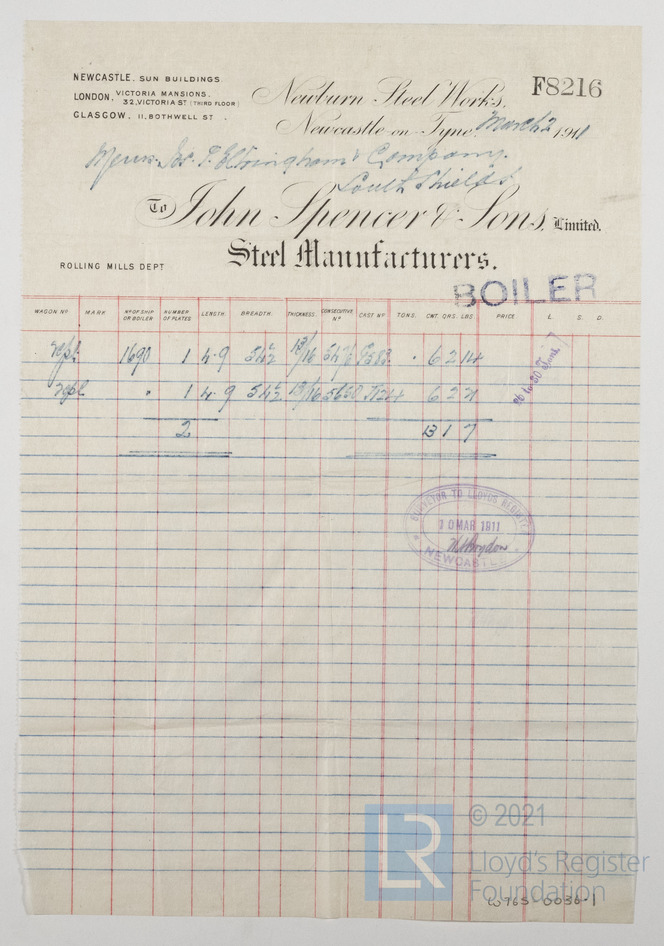 NEWCASTLE. SUN BUILDINGS.
LONDON. VICTORIA MANSIONS.
32, VICTORIA ST (THIRD FLOOR)
GLASGOW. 11, BOTHWELL ST.
F8216
Newburn Steel Works,
Newcastle-on-Tyne, March 2 1911
Messrs Jos. T. Eltringham & Company.
South Shields
To John Spencer & Sons, Limited.
Steel Manufacturers.
ROLLING MILLS DEPT
BOILER
WAGON No MARK No OF SHIP OR BOILER NUMBER OF PLATES LENGTH BREADTH THICKNESS CONSECUTIVE No CAST No TONS. CWT. QRS. LBS. PRICE £. S. D.
repl 1690 1 4.9 54½ 13/16 6 2 14
repl " 1 4.9 54½ 13/16 6 2 21
2 13 1 7
26 to 30 Tons
SURVEYOR TO LLOYDS REGISTER
10 MAR 1911
NEWCASTLE
© 2021
LR
Lloyd's Register
Foundation
W765-0036-1